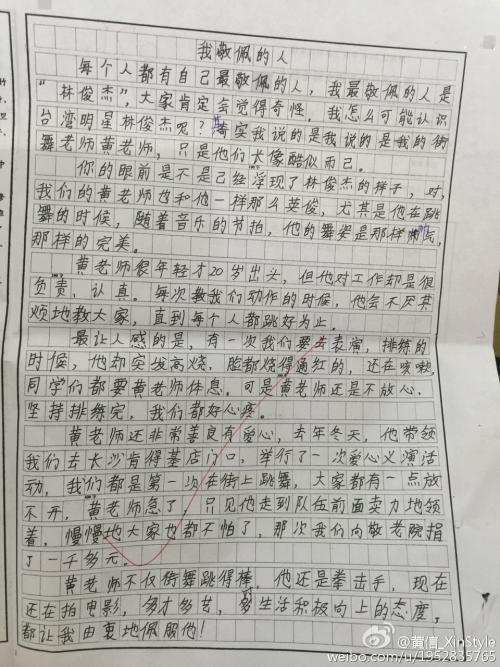 我敬佩的人
每个人都有自己最敬佩的人，我最敬佩的人是
“林俊杰”，大家肯定会觉得奇怪，我怎么可能认识
台湾明星林俊杰呢？其实我说的是我说的是我的街
舞老师黄老师，只是他们太像酷似而已。
你的眼前是不是已经浮现了林俊杰的样子，对，
我们的黄老师也和他一样那么英俊，尤其是他在跳
舞的时候，随着音乐的节拍，他的舞姿是那样
那样的完美。
黄老师很年轻才20岁出头，但他对工作却是很
负责、认真。每次教我们动作的时候，他会不厌其
烦地教大家，直到每个人都跳好为止。
最让人感的是，有一次我们要去表演，排练的
时候，他却突发高烧，脸都烧得通红的，还在咳嗽，
同学们都要黄老师休息。可是黄老师还是不放心，
坚持排练完，我们都好心疼。
黄老师还非常善良有爱心，去年冬天，他带领
我们去长沙肯得基店门口，举行了一次爱心义演活
动，我们都是第一次在街上跳舞，大家都有一点放
不开，黄老师急了，只见他走到队伍前面卖力地领
着，慢慢地大家也都不怕了，那次我们向敬老院捐
了一千多元。
黄老师不仅街舞跳得棒，他还是拳击手，现在
还在拍电影，多才多艺，生活积极向上的态度，
都让我由衷地佩服他！
@黄信_XinStyle
weibo.com/u/1952835765